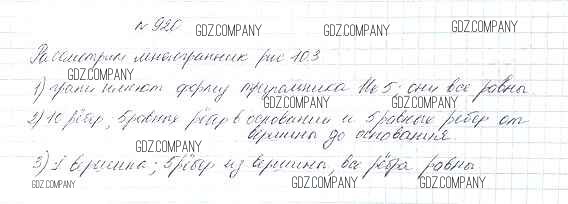 № 920 GDZ.COMPANY GDZ.COMPANY GDZ.COMPANY
Рассмотрим многогранник рис 10.3
GDZ.COMPANY
1) грани имеют форму треугольника. Их 5; они все равны
GDZ.COMPANY GDZ.COMPANY
2) 10 рёбер, 5 равных рёбер в основании и 5 равных ребер от
вершины до основания.
GDZ.COMPANY
3) 1 вершина; 5 рёбер из вершины, все рёбра равны
GDZ.COMPANY GDZ.COMPANY GDZ.COMPANY